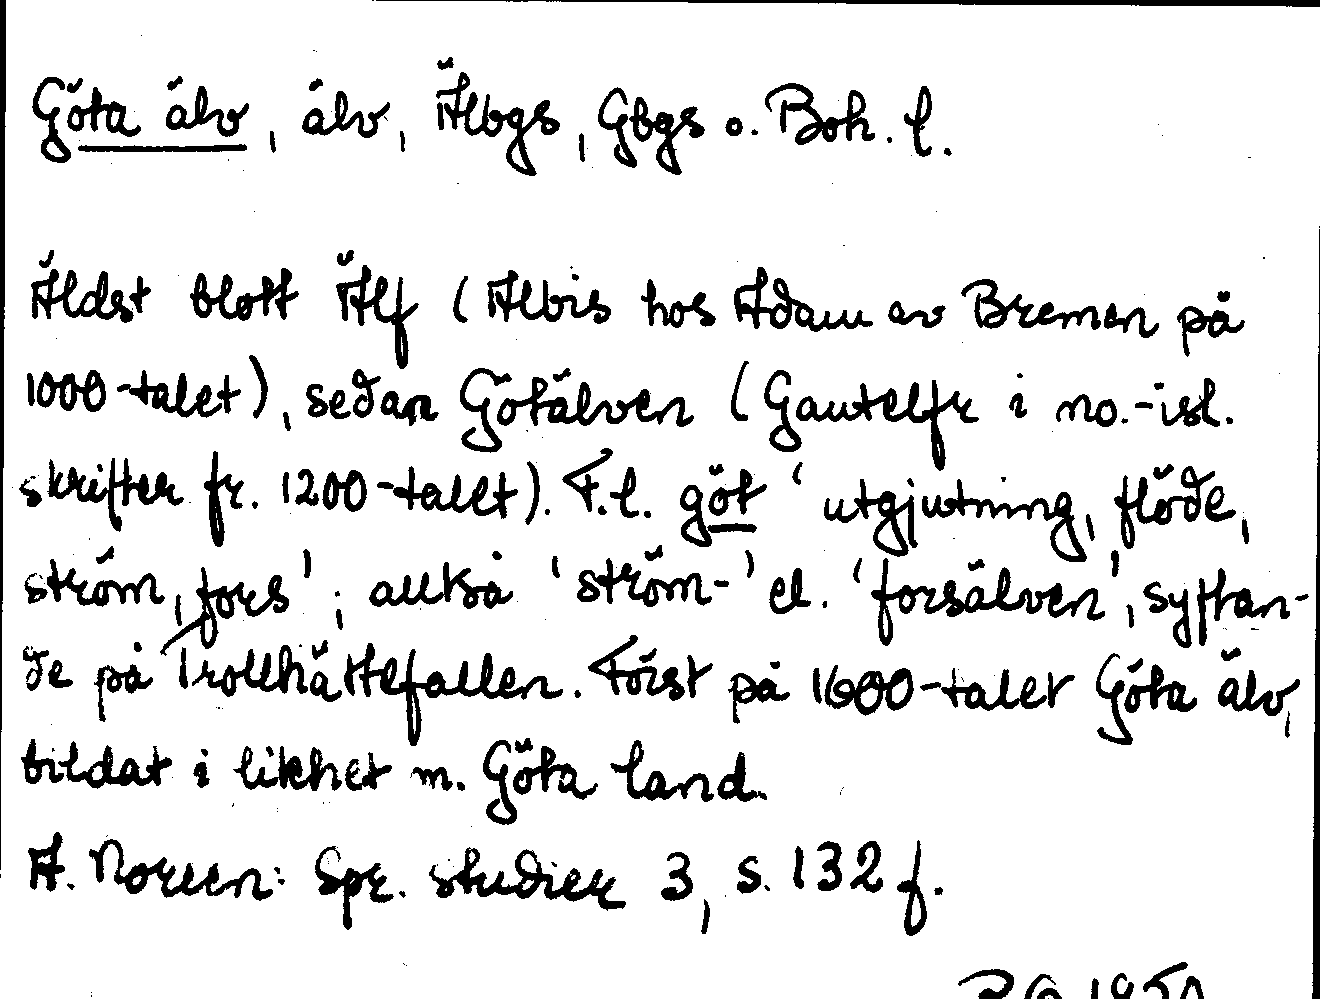 Göta älv, älv, Älbgs, Gbgs o. Boh. l.
Äldst blott Älf (Albis hos Adam av Bremen på
1000-talet), sedan Götälven (Gautelfr i no.-isl.
skrifter fr. 1200-talet). T.l. göt 'utgjutning, flöde,
ström, fors'; alltså 'ström-' el. 'forsälven', syftan-
de på Trollhättefallen. Först på 1600-talet Göta älv,
bildat i likhet m. Göta land.
A. Noreen: Spr. studier 3, s. 132 f.